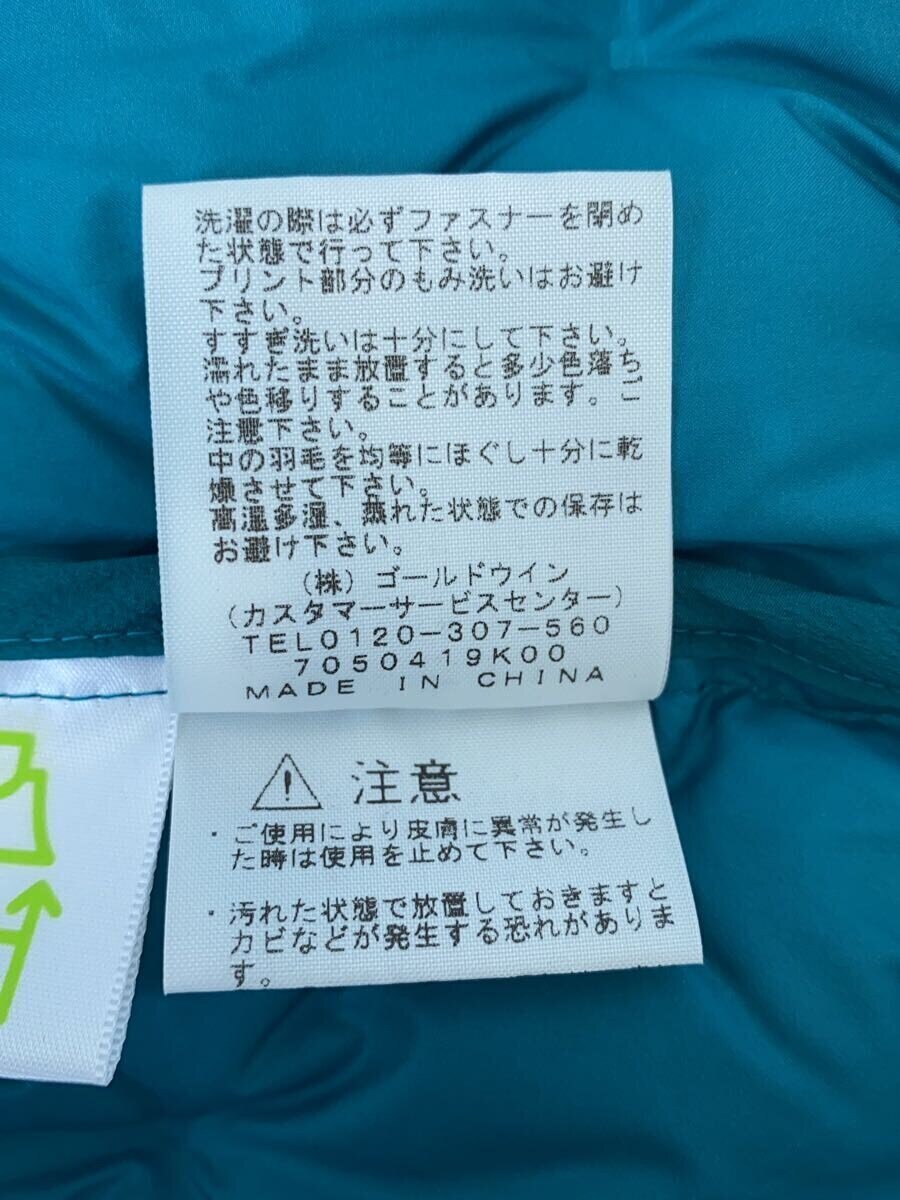 洗濯の際は必ずファスナーを閉め
た状態で行って下さい。
プリント部分のもみ洗いはお避け
下さい。
すすぎ洗いは十分にして下さい。
濡れたまま放置すると多少色落ち
や色移りすることがあります。ご
注意下さい。
中の羽毛を均等にほぐし十分に乾
燥させて下さい。
高温多湿、蒸れた状態での保存は
お避け下さい。
(株)ゴールドウイン
(カスタマーサービスセンター)
TEL0120-307-560
7050419K00
MADE IN CHINA
注意
・ご使用により皮膚に異常が発生し
た時は使用を止めて下さい。
・汚れた状態で放置しておきますと
カビなどが発生する恐れがありま
す。